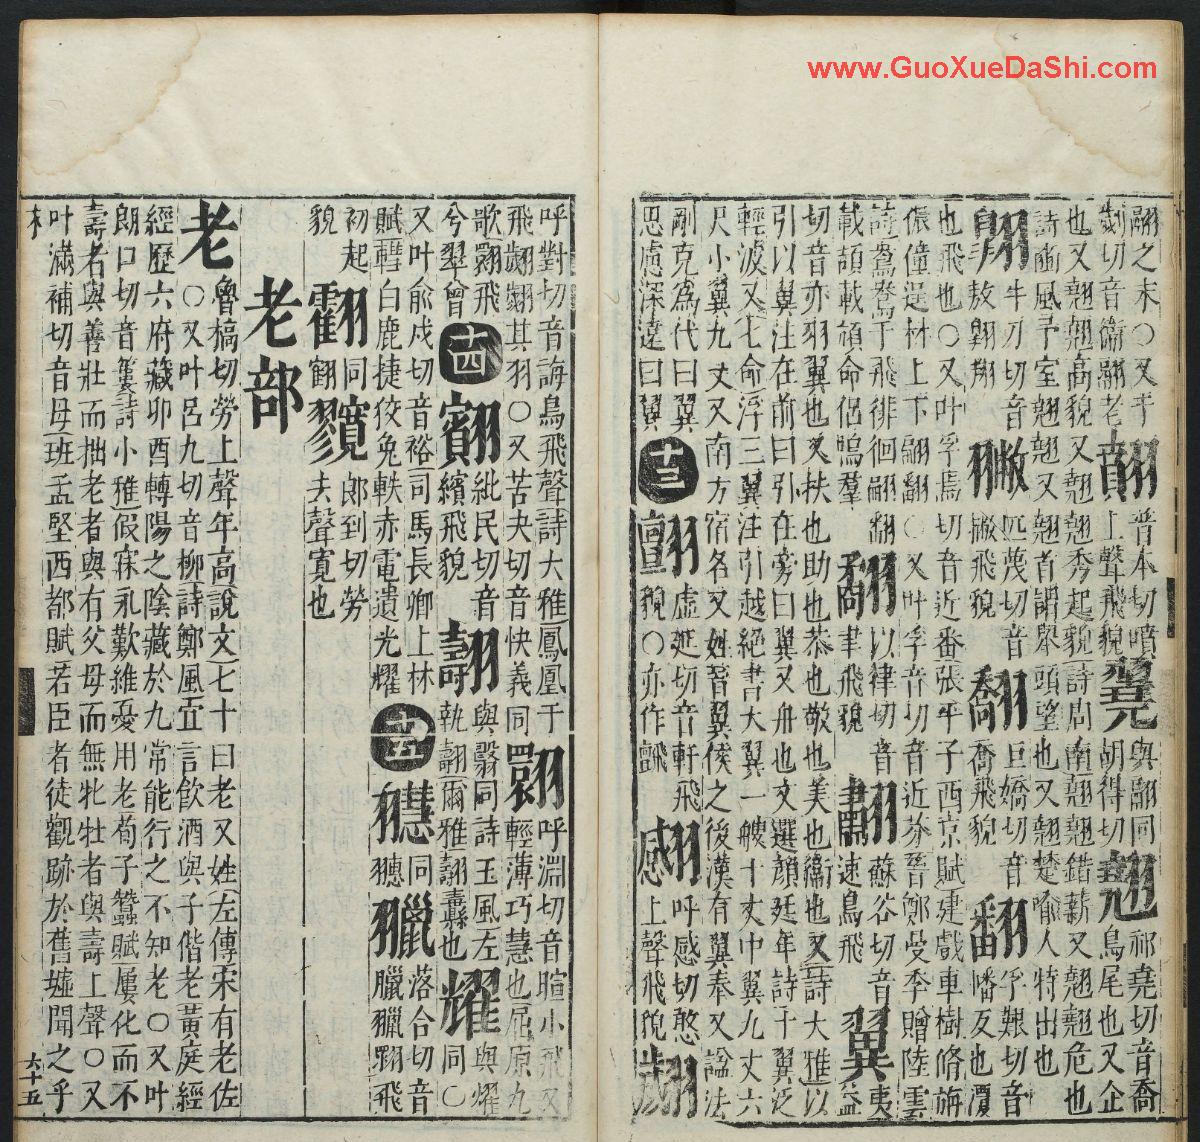 翮之末○又乎
劌切音衞翮老
翸
普本切噴
上聲飛貌
與翮同
胡得切
翹
祁堯切音喬
鳥尾也又企
也又翹翹高貌又翹翹秀起貌詩周南翹翹錯薪又翹翹危也
詩豳風予室翹翹又翹首謂舉頭望也又翹楚喻人特出也
翶
牛刀切音
敖翶翔
匹蔑切音
撇飛貌
巨嬌切音
喬飛貌
翻
孚艱切音
幡反也覆
也飛也○又叶孚焉切音近番張平子西京賦建戲車樹脩旃
侲僮逞材上下翮翻○又叶孚音切音近芬晉鄭曼季贈陸雲
詩鴛鴦于飛徘徊翮翻
載頡載頏命侶鳴羣
以律切音
聿飛貌
蘇谷切音
速鳥飛
翼
夷
益
切音亦羽翼也又扶也助也恭也敬也美也衞也又詩大雅以
引以翼注在前曰引在旁曰翼又舟也文選顏延年詩千翼泛
輕波又七命浮三翼注引越絕書大翼一艘十丈中翼九丈六
尺小翼九丈又南方宿名又姓晉翼俟之後漢有翼奉又諡法
剛克爲代曰翼
思慮深遠曰翼
十三
虛延切音軒飛
貌○亦作
呼感切憨
上聲飛貌
翽
呼對切音誨鳥飛聲詩大雅鳳凰于
飛翽翽其羽○又苦夬切音快義同
翾
呼淵切音暄小飛又
輕薄巧慧也屈原九
歌翾飛
兮翠曾
十四
紕民切音
繽飛貌
翿
與翳同詩王風左
執翿爾雅翿纛也
耀
與燿
同○
又叶俞戍切音裕司馬長卿上林
賦轊白鹿捷狡兔軼赤電遺光耀
十五
同
落合切音
臘飛
初起
貌
同
郎到切勞
去聲寬也
老部
老
魯槁切勞上聲年高說文七十曰老又姓左傳宋有老佐
○又叶呂九切音柳詩鄭風宜言飲酒與子偕老黃庭經
經歷六府藏卯酉轉陽之陰藏於九常能行之不知老○又叶
朗口切音簍詩小雅假寐永歎維憂用老荀子蠶賦屢化而不
壽者與善壯而拙老者與有父母而無牝牡者與壽上聲○又
叶滿補切音母班孟堅西都賦若臣者徒觀跡於舊墟聞之乎
六十五
www.GuoXueDaShi.com